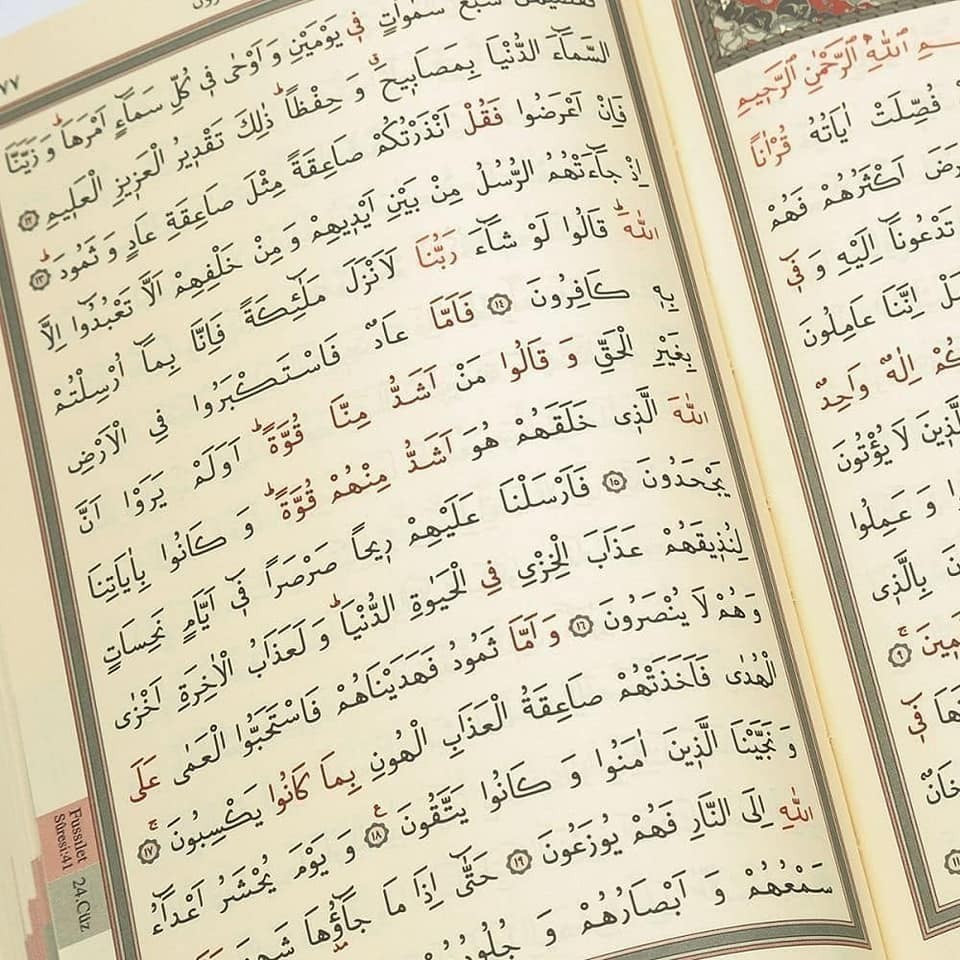 اللّٰهِ الرَّحْمٰنِ الرَّحٖيمِ
فُصِّلَتْ اٰيَاتُهُ قُرْاٰناً
اَكْثَرُهُمْ فَهُمْ
تَدْعُونَٓا اِلَيْهِ وَ فٖٓي
اِنَّنَا عَامِلُونَ
اِلٰهٌ وَاحِدٌ
لَا يُؤْتُونَ
وَ عَمِلُوا
بِالَّذٖي
٩
فٖٓي
٧٧
سَبْعَ سَمٰوَاتٍ فٖي يَوْمَيْنِ وَ اَوْحٰى فٖي كُلِّ سَمَٓاءٍ اَمْرَهَاؕ وَ زَيَّنَّا
السَّمَٓاءَ الدُّنْيَا بِمَصَابٖيحَۗ وَ حِفْظاًؕ ذٰلِكَ تَقْدٖيرُ الْعَزٖيزِ الْعَلٖيمِ ١٢
فَاِنْ اَعْرَضُوا فَقُلْ اَنْذَرْتُكُمْ صَاعِقَةً مِثْلَ صَاعِقَةِ عَادٍ وَ ثَمُودَؕ ١٣
اِذْ جَٓاءَتْهُمُ الرُّسُلُ مِنْ بَيْنِ اَيْدٖيهِمْ وَ مِنْ خَلْفِهِمْ اَلَّا تَعْبُدُٓوا اِلَّا
اللّٰهَؕ قَالُوا لَوْ شَٓاءَ رَبُّنَا لَاَنْزَلَ مَلٰٓئِكَةً فَاِنَّا بِمَٓا اُرْسِلْتُمْ
بِهٖ كَافِرُونَ ١٤ فَاَمَّا عَادٌ فَاسْتَكْبَرُوا فِي الْاَرْضِ
بِغَيْرِ الْحَقِّ وَ قَالُوا مَنْ اَشَدُّ مِنَّا قُوَّةًؕ اَوَلَمْ يَرَوْا اَنَّ
اللّٰهَ الَّذٖي خَلَقَهُمْ هُوَ اَشَدُّ مِنْهُمْ قُوَّةًؕ وَ كَانُوا بِاٰيَاتِنَا
يَجْحَدُونَ ١٥ فَاَرْسَلْنَا عَلَيْهِمْ رٖيحاً صَرْصَراً فٖٓي اَيَّامٍ نَحِسَاتٍ
لِنُذٖيقَهُمْ عَذَابَ الْخِزْيِ فِي الْحَيٰوةِ الدُّنْيَاؕ وَ لَعَذَابُ الْاٰخِرَةِ اَخْزٰى
وَ هُمْ لَا يُنْصَرُونَ ١٦ وَ اَمَّا ثَمُودُ فَهَدَيْنَاهُمْ فَاسْتَحَبُّوا الْعَمٰى عَلَى
الْهُدٰى فَاَخَذَتْهُمْ صَاعِقَةُ الْعَذَابِ الْهُونِ بِمَا كَانُوا يَكْسِبُونَۚ ١٧
وَ نَجَّيْنَا الَّذٖينَ اٰمَنُوا وَ كَانُوا يَتَّقُونَ ١٨ وَ يَوْمَ يُحْشَرُ اَعْدَٓاءُ
اللّٰهِ اِلَى النَّارِ فَهُمْ يُوزَعُونَ ١٩ حَتّٰٓى اِذَا مَا جَٓاؤُ۫هَا
سَمْعُهُمْ وَ اَبْصَارُهُمْ وَ
Fussılet
Sûresi:41
24.Cüz